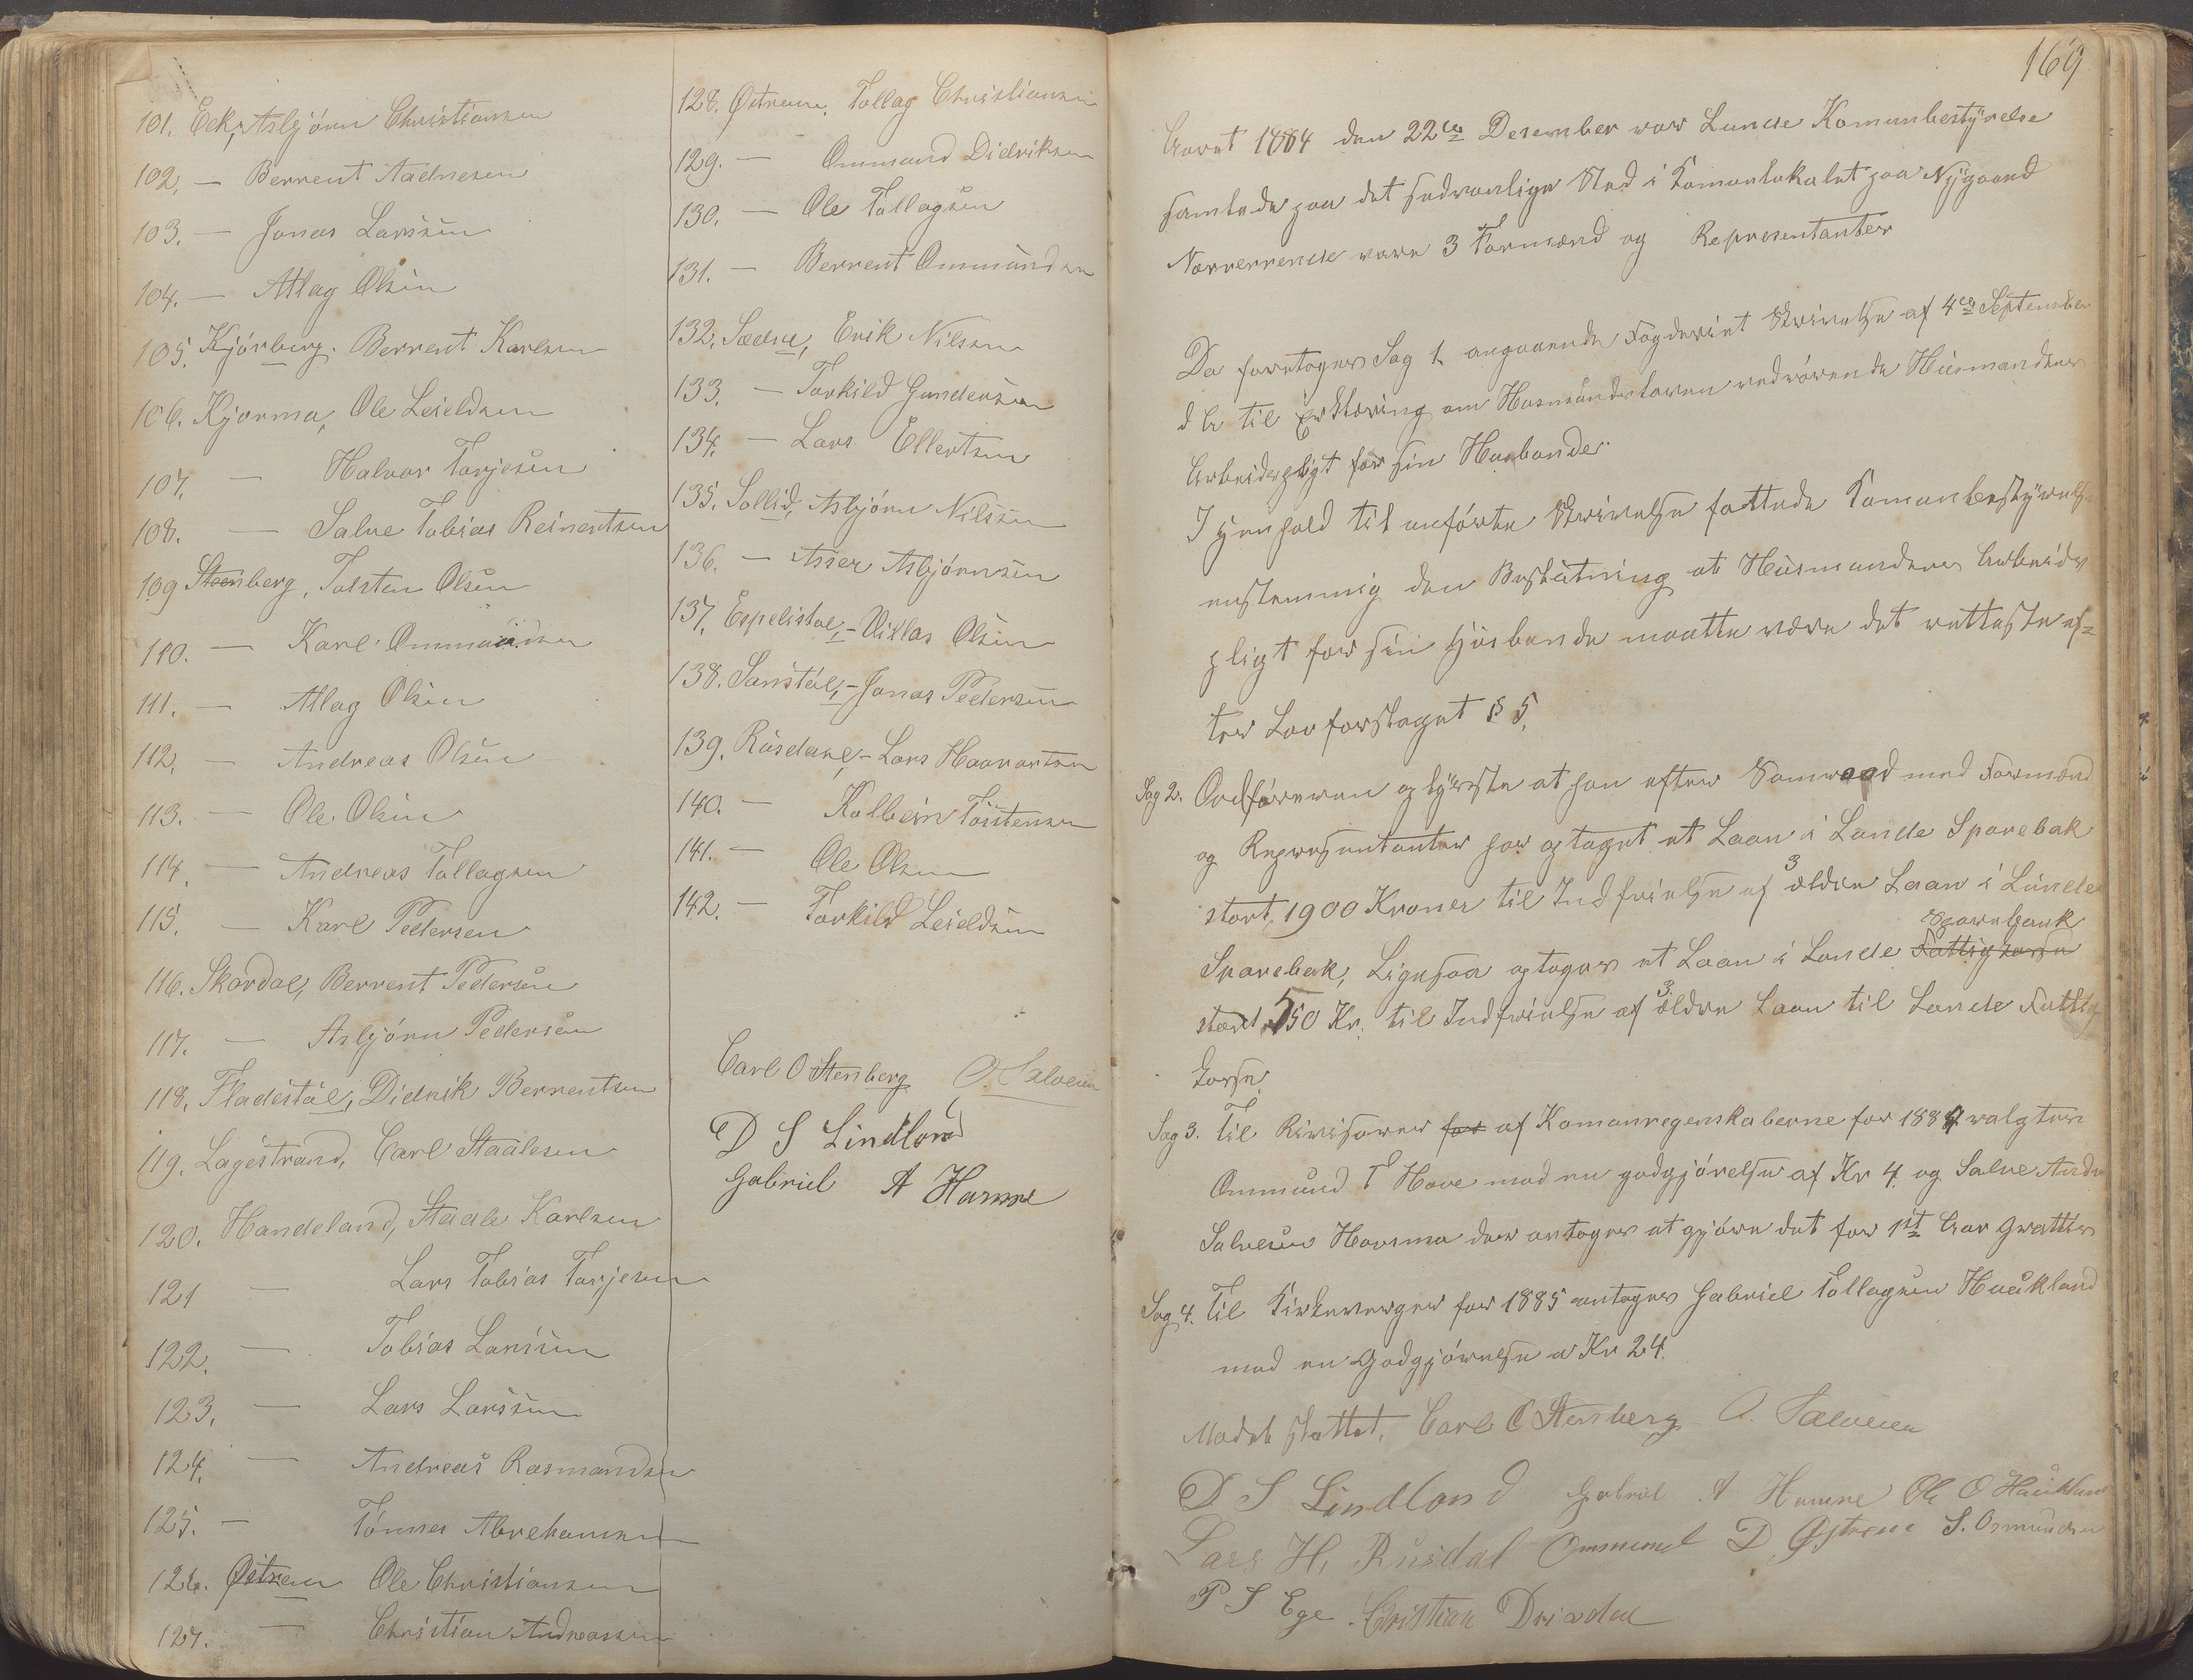 101. Eek, Asbjörn Christiansen
102. — Berrent Aadnesen
103. — Jonas Larssen
104. — Atlag Olsen
105. Kjörberg. Berrent Karlsen
106. Kjorma, Ole Leieldsen
107. — Halvor Tarjesen
108. — Salve Tobias Reinertsen
109 Stenberg, Tolsten Olsen
110. — Karl Ommundsen
111. — Atlag Olsen
112. — Andreas Olsen
113. — Ole Olsen
114. — Andreas Tollagsen
115. — Karl Pedersen
116. Skárdal, Berrent Pedersen
117. — Asbjörn Pedersen
118. Fladestöl, Didrik Berrentsen
119. Lagestrand, Carl Staalesen
120. Handeland, Staale Karlsen
121 — Lars Tobias Tarjesen
122. — Tobias Larssen
123. — Lars Larssen
124. — Andreas Rasmandsen
125. — Tönnes Abrehamsen
126. Östrem Ole Christiansen
127. — Christian Andreassen
128. Östrem, Tollag Christiansen
129. — Ommund Didriksen
130. — Ole Tollagsen
131. — Berrent Ommundsen
132. Sædal, Erik Nilsen
133. — Torkild Gundersen
134. — Lars Ellertsen
135. Sollid, Asbjörn Nilssen
136. — Asser Asbjörnsen
137. Espelistöl, - Villas Olsen
138. Sanstöl, - Jonas Pedersen
139. Rusdal, - Lars Haavartsen
140. — Kolbein Torstensen
141. — Ole Olsen
142. — Torkild Leieldsen
Carl O Stenberg O. Salvesen
D S Lindland
Gabriel A Hamre
169
Aaret 1884 den 22de Desember var Lunde Komunbestÿrelse
samlede paa det sedvanlige Sted i Komunlokalet paa Nÿgaard
Nærverende vare 3 Formænd og Representanter
Da foretoges Sag 1. angaaende Fogderiet Skrivelse af 4de September
d A til Erklæring om Husmandsloven vedrörende Husmandens
Arbeidspligt for sin Husbonde.
I Henhold til anförte Skrivelse fattede Komunbestÿrelse
enstemmig den Beslutning at Husmandens Arbeids
pligt for sin Husbonde maatte være det retteste ef=
ter Lovforslaget § 5.
Sag 2. Ordföreren oplÿste at han efter Samraad med Formænd
og Representanter har optaget et Laan i Lunde Sparebak
stort 1900 Kroner til Indfrielse af 3 ældre Laan i Lunde
Sparebak, Ligesaa optages et Laan i Lunde Fattigkasse Sparebank
stort 550 Kr. til Indfrielse af 3 ældre Laan til Lunde Fattig
kasse.
Sag 3. Til Rivisorer for af Komunregenskaberne for 1884 valgtes
Ommund T Hove mod en godgjörelse af Kr 4 og Salve Andr
Salvesen Hovsmo der antoges at gjöre det for 1st Aar grattis
Sag 4. Til Kirkeverger for 1885 antages Gabriel Tollagsen Haukland
mod en Godgjörelse a Kr 24.
Mødet sluttet. Carl O Stenberg O. Salvesen
D S Lindland Gabriel A Hamre Ole O Haukland
Lars H. Rusdal Ommund D. Østrem S. Osmundsen
P S Ege Cristian Drivdal